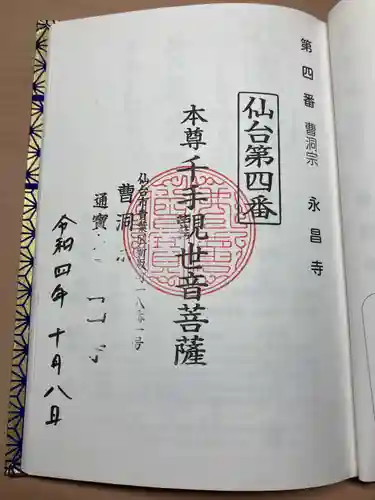 第四番 曹洞宗 永昌寺
仙台第四番
本尊千手觀世音菩薩
仙台市青葉
曹洞
通寶
令和四年 十月八日